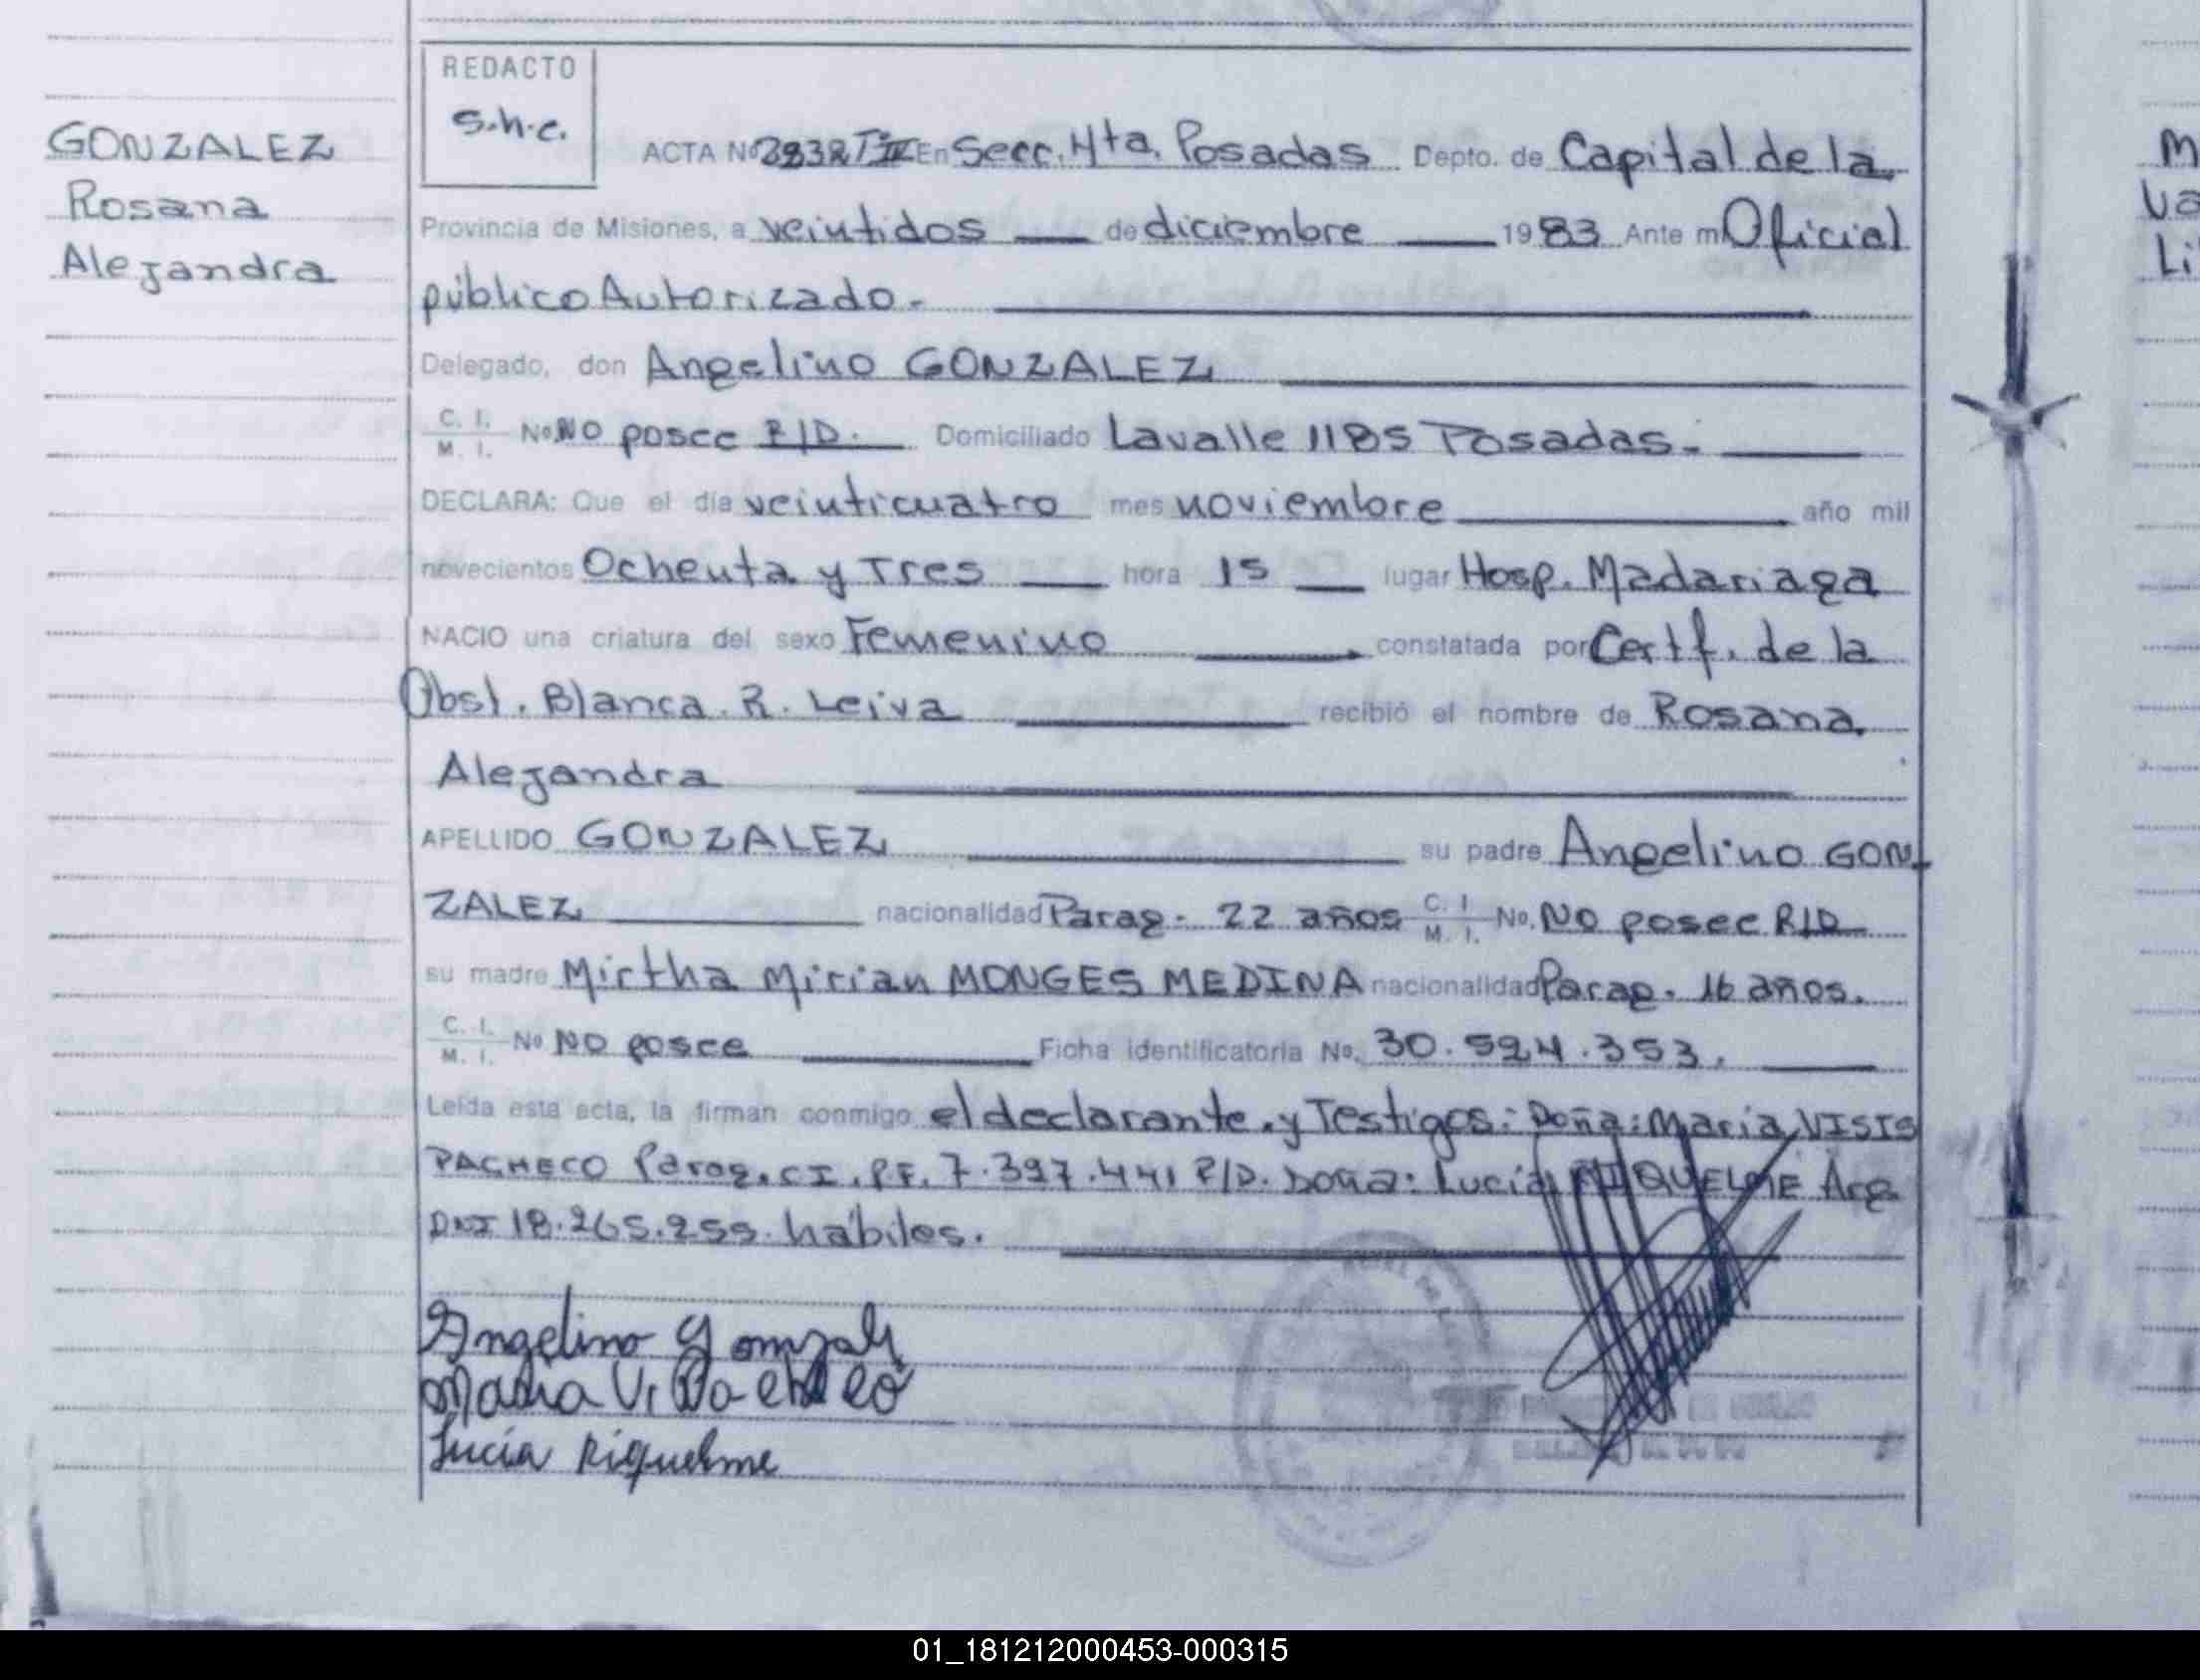 REDACTO
s.h.c.
GONZALEZ
Rosana
Alejandra
ACTA Nº 2832 TºIX En Secc. 4ta. Posadas Depto. de Capital de la
Provincia de Misiones, a veintidos de diciembre 1983 Ante mi Oficial
público Autorizado.-
Delegado, don Angelino GONZALEZ
C. I. M. I. Nº No posee R/D. Domiciliado Lavalle 1185 Posadas.-
DECLARA: Que el día veinticuatro mes noviembre año mil
novecientos Ochenta y Tres hora 15 lugar Hosp. Madariaga
NACIO una criatura del sexo Femenino constatada por Certf. de la
Obst. Blanca. R. Leiva recibió el nombre de Rosana
Alejandra
APELLIDO GONZALEZ su padre Angelino GON-
ZALEZ nacionalidad Parag.- 22 años C. I. M. I. No. No posee R/D
su madre Mirtha Mirian MONGES MEDINA nacionalidad Parag. 16 años.
C. I. M. I. Nº No posee Ficha identificatoria No. 30.524.353.
Leída esta acta, la firman conmigo el declarante. y Testigos: Doña: María
PACHECO Parag. CI. PF. 7.397.441 R/D. Doña: Lucía RIQUELME Arg.
DNI 18.265.255. hábiles.
Angelino
Maria
Lucia Riquelme
M
Va
Li
01_181212000453-000315